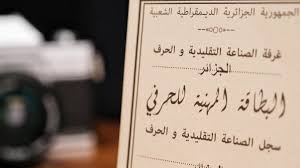 الجمهورية الجزائرية الديمقراطية الشعبية
غرفة الصناعة التقليدية و الحرف
الجزائر
البطاقة المهنية للحرفي
سجل الصناعة التقليدية و الحرف
الجزائر